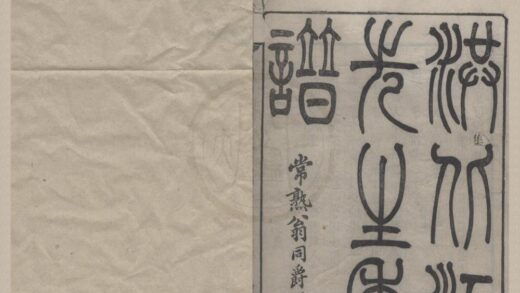 洪北江
先生年
譜
常熟翁同爵
集